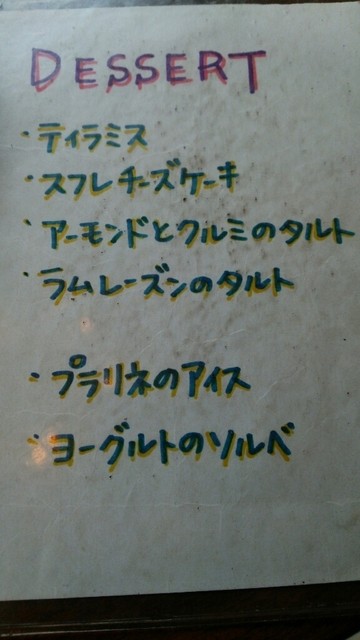 DESSERT
・ティラミス
・スフレチーズケーキ
・アーモンドとクルミのタルト
・ラムレーズンのタルト
・プラリネのアイス
・ヨーグルトのソルベ